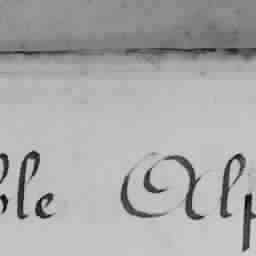 ble Alp